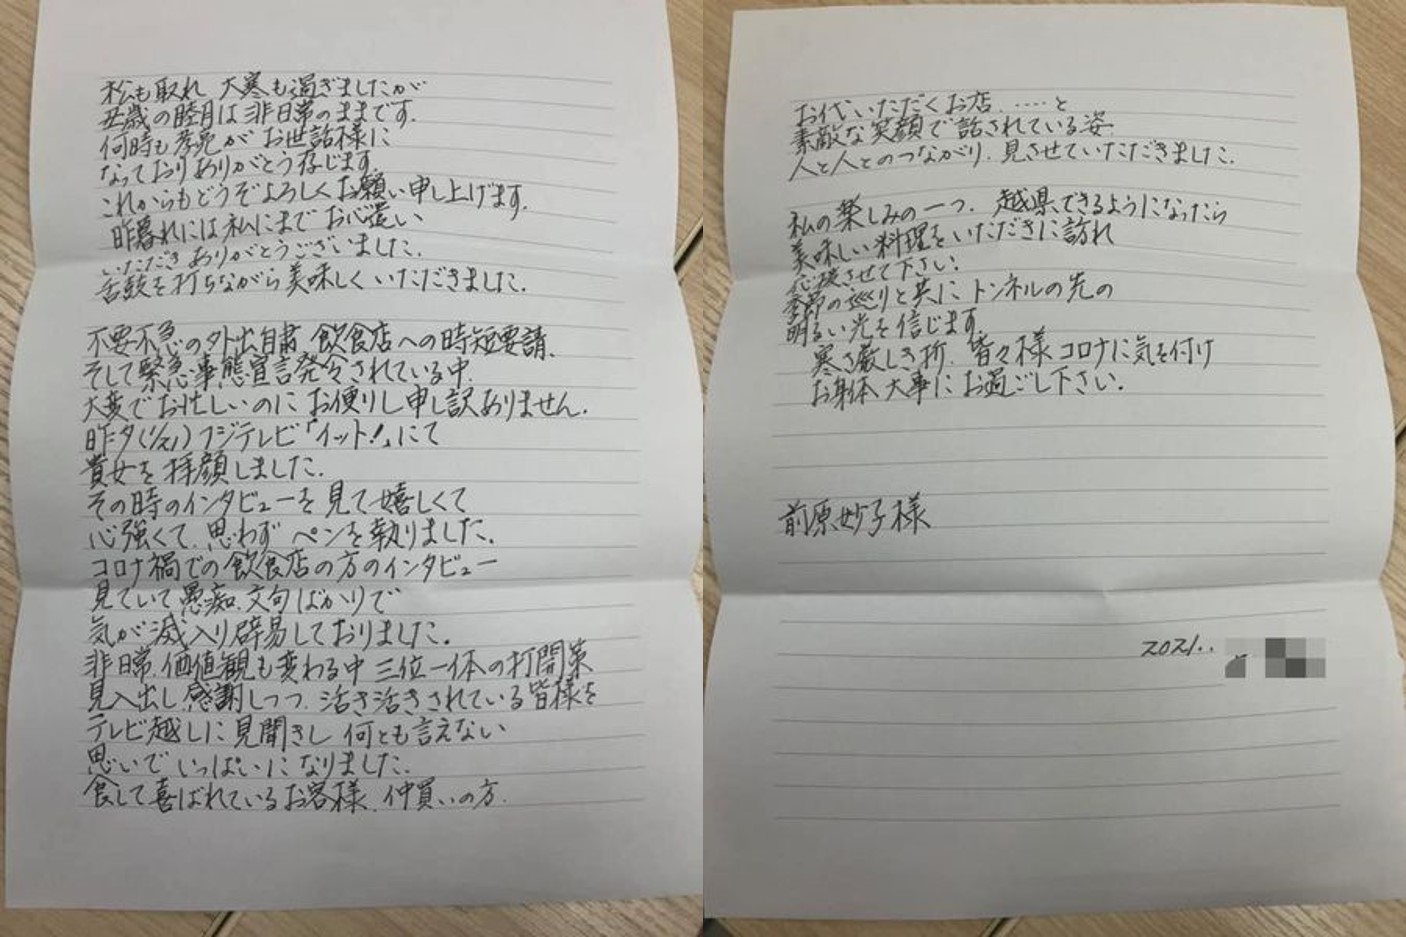 松も取れ 大寒も過ぎましたが
丑歳の睦月は非日常のままです.
何時も孝亮が お世話様に
なっており ありがとう存じます.
これからもどうぞよろしくお願い申し上げます.
昨暮れには私にまで お心遣い
いただき ありがとうございました.
舌鼓を打ちながら美味しくいただきました.
不要不急の外出自粛. 飲食店への時短要請.
そして緊急事態宣言発令されている中.
大変でお忙しいのに お便りし申し訳ありません.
昨夕(1/21) フジテレビ「イット!」にて
貴女を 拝顔しました.
その時のインタビューを 見て 嬉しくて
心強くて. 思わず ペンを執りました.
コロナ禍での飲食店の方のインタビュー
見ていて 愚痴. 文句ばかりで
気が滅入り辟易しておりました.
非日常. 価値観も変わる中 三位一体の打開策
見入出し. 感謝しつつ. 活き活きされている皆様を
テレビ越しに 見聞きし 何とも言えない
思いで いっぱいに なりました.
食して喜ばれているお客様. 仲買いの方.
お代いただくお店. ....と
素敵な笑顔で話されている姿.
人と人とのつながり. 見させていただきました.
私の楽しみの一つ. 越県できるようになったら
美味しい料理をいただきに訪れ
応援させて下さい!
季節の巡りと共に トンネルの先の
明るい光を信じます.
寒さ厳しき折. 皆々様 コロナに気を付け
お身体 大事に お過ごし下さい.
前原妙子様
2021..